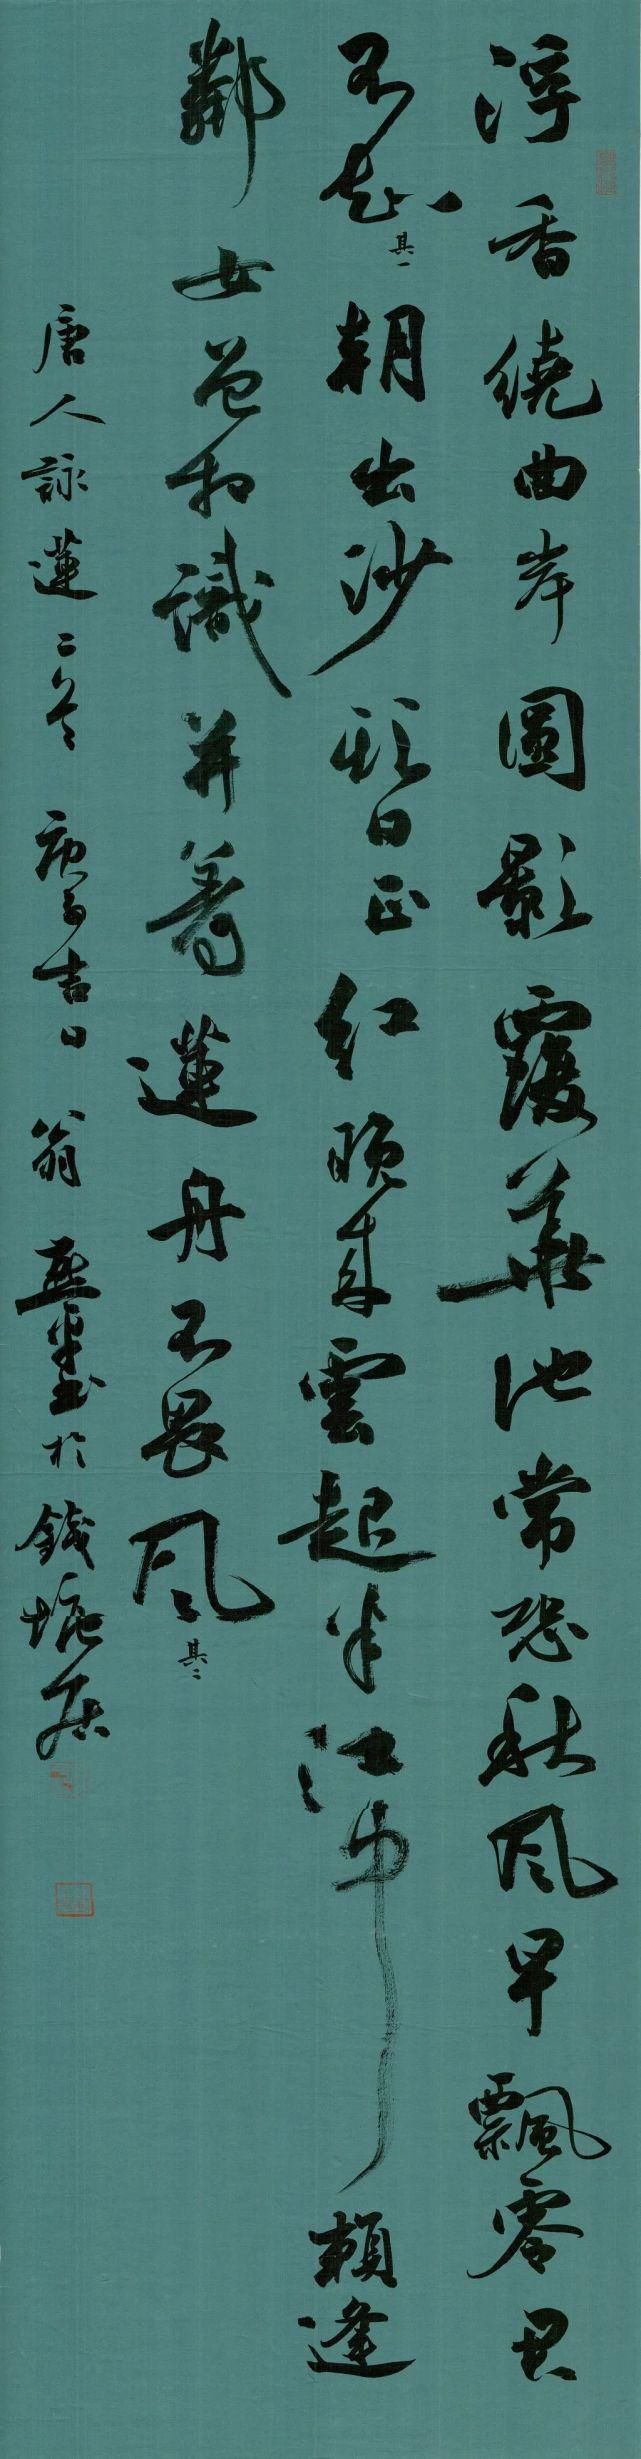 浮香繞曲岸圓影覆華池常恐秋風早飄零君
不知其一朝出沙頭日正紅晚來雲起半江中賴逢
鄰女曾相識并著蓮舟不畏風其二
唐人詠蓮二首庚子吉日翁燕書於錢塘居